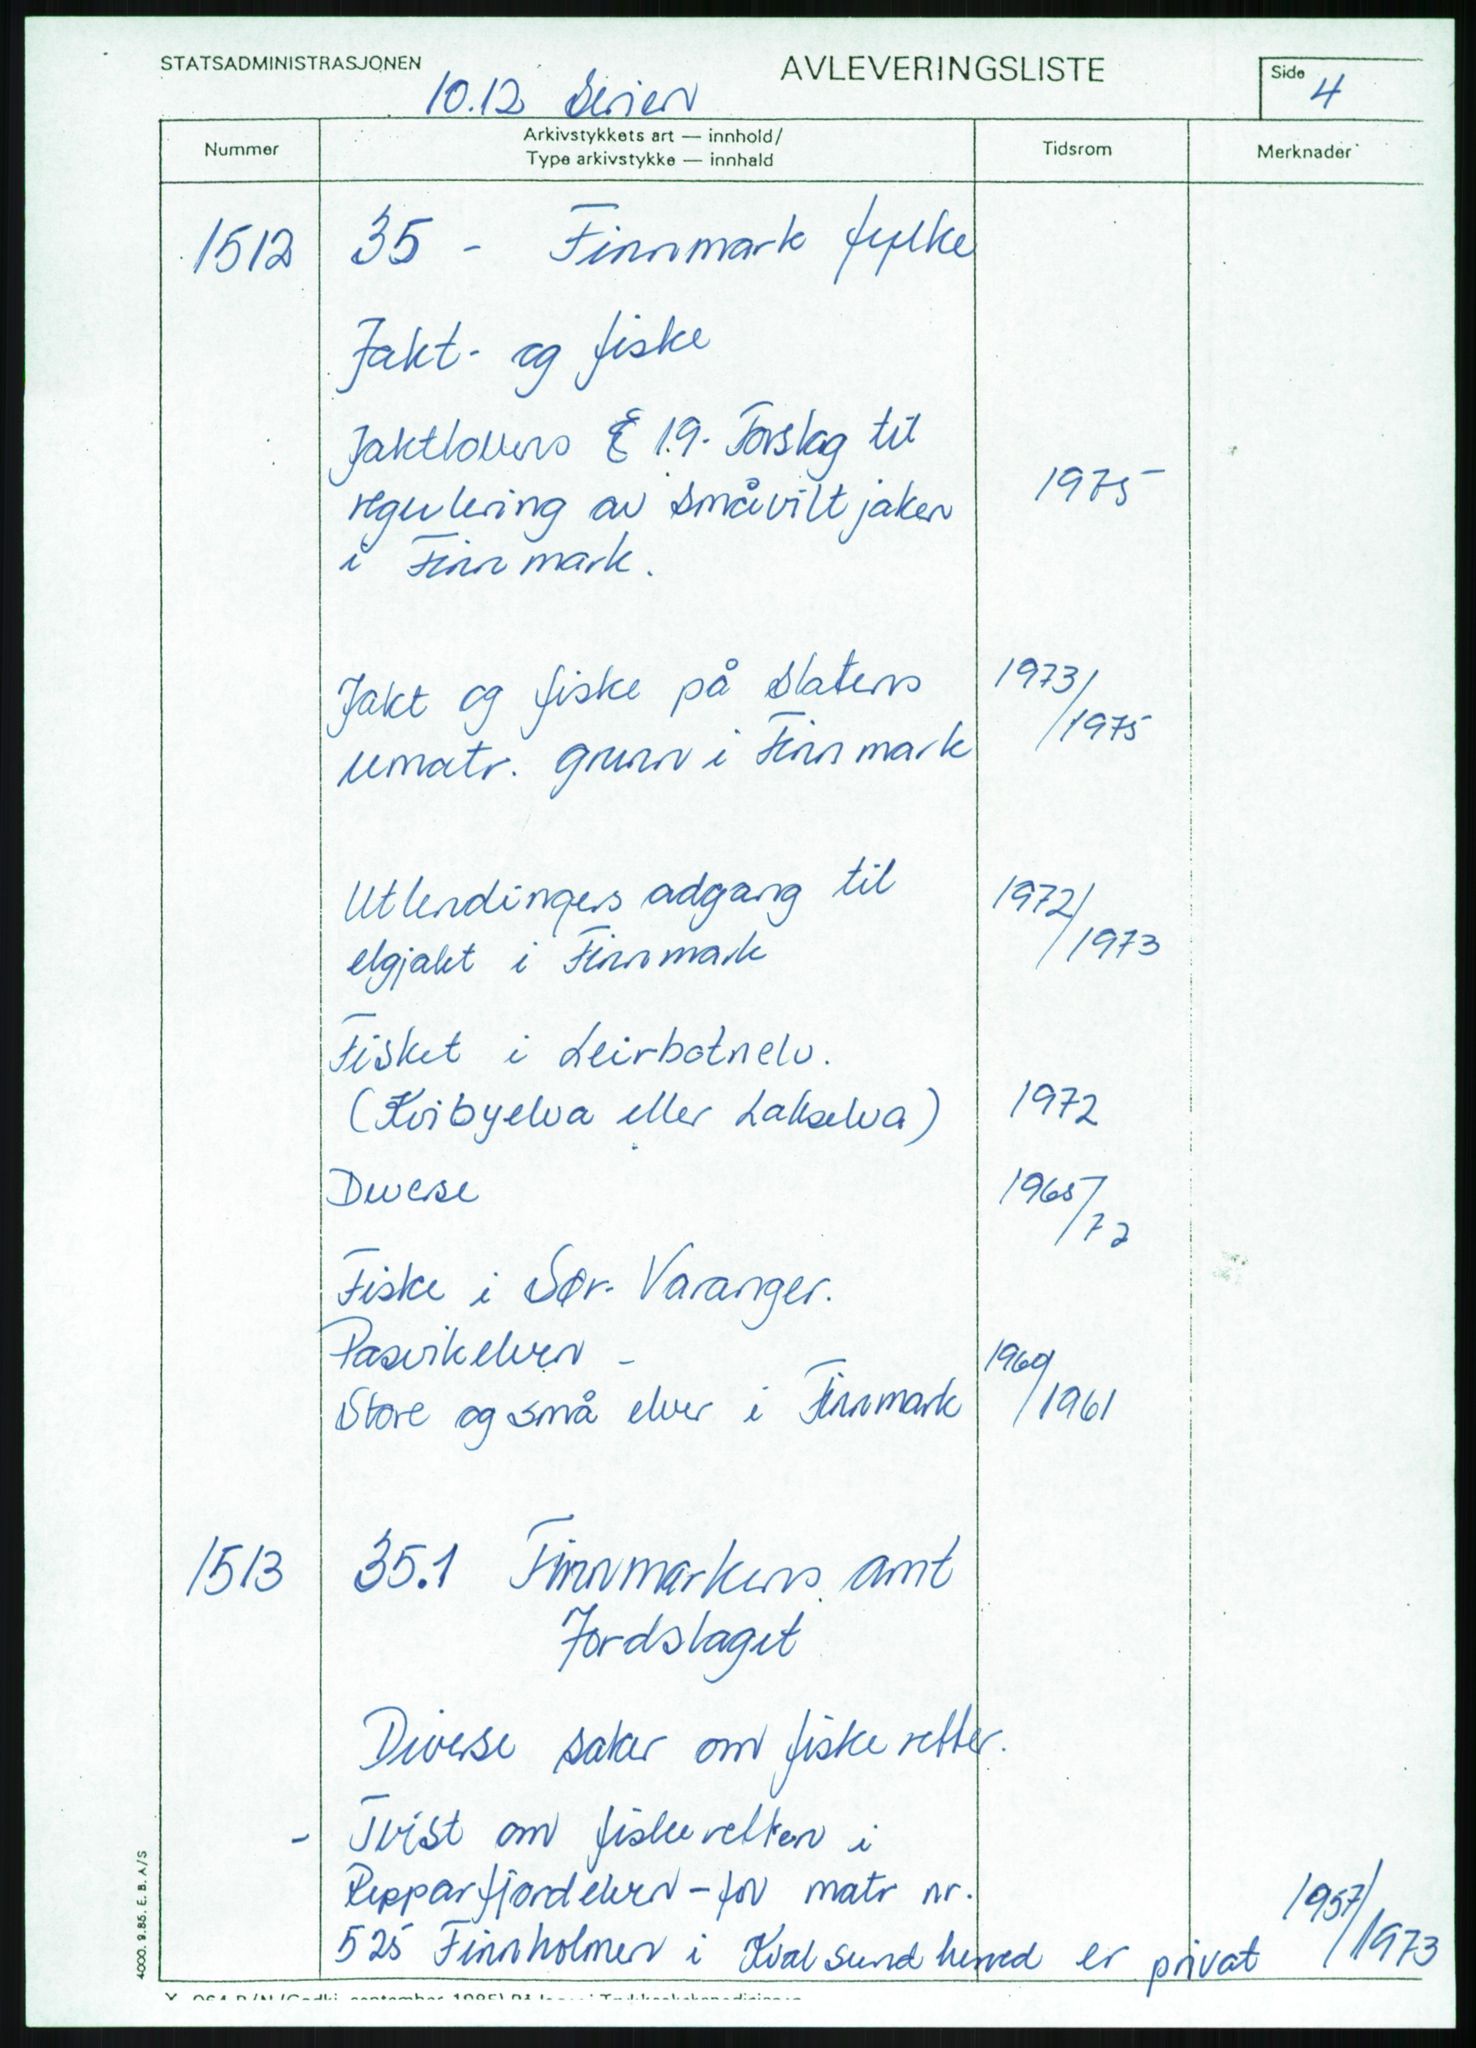 STATSADMINISTRASJONEN
AVLEVERINGSLISTE
Side 4
10.12 Serien
Nummer
Arkivstykkets art — innhold/
Type arkivstykke — innhald
Tidsrom
Merknader
1512 35 - Finnmark fylke
Jakt- og fiske
Jaktlovens § 19. Forslag til
regulering av småviltjaken 1975
i Finnmark.
Jakt og fiske på Statens 1973/
umatr. grunn i Finnmark 1975
Utlendingers adgang til 1972/
elgjakt i Finnmark 1973
Fisket i Leirbotnelv.
(Kvibyelva eller Lakselva) 1972
Diverse 1965/
72
Fiske i Sør-Varanger.
Pasvikelven - 1960/
Store og små elver i Finnmark 1961
1513 35.1 Finnmarkens amt
Jordslaget
Diverse saker om fiskeretter.
- Tvist om fiskeretten i
Repparfjordelven - for matr nr. 1957/
525 Finnholmen i Kvalsund herred er privat 1973
4000. 9.85. E. B. A/S